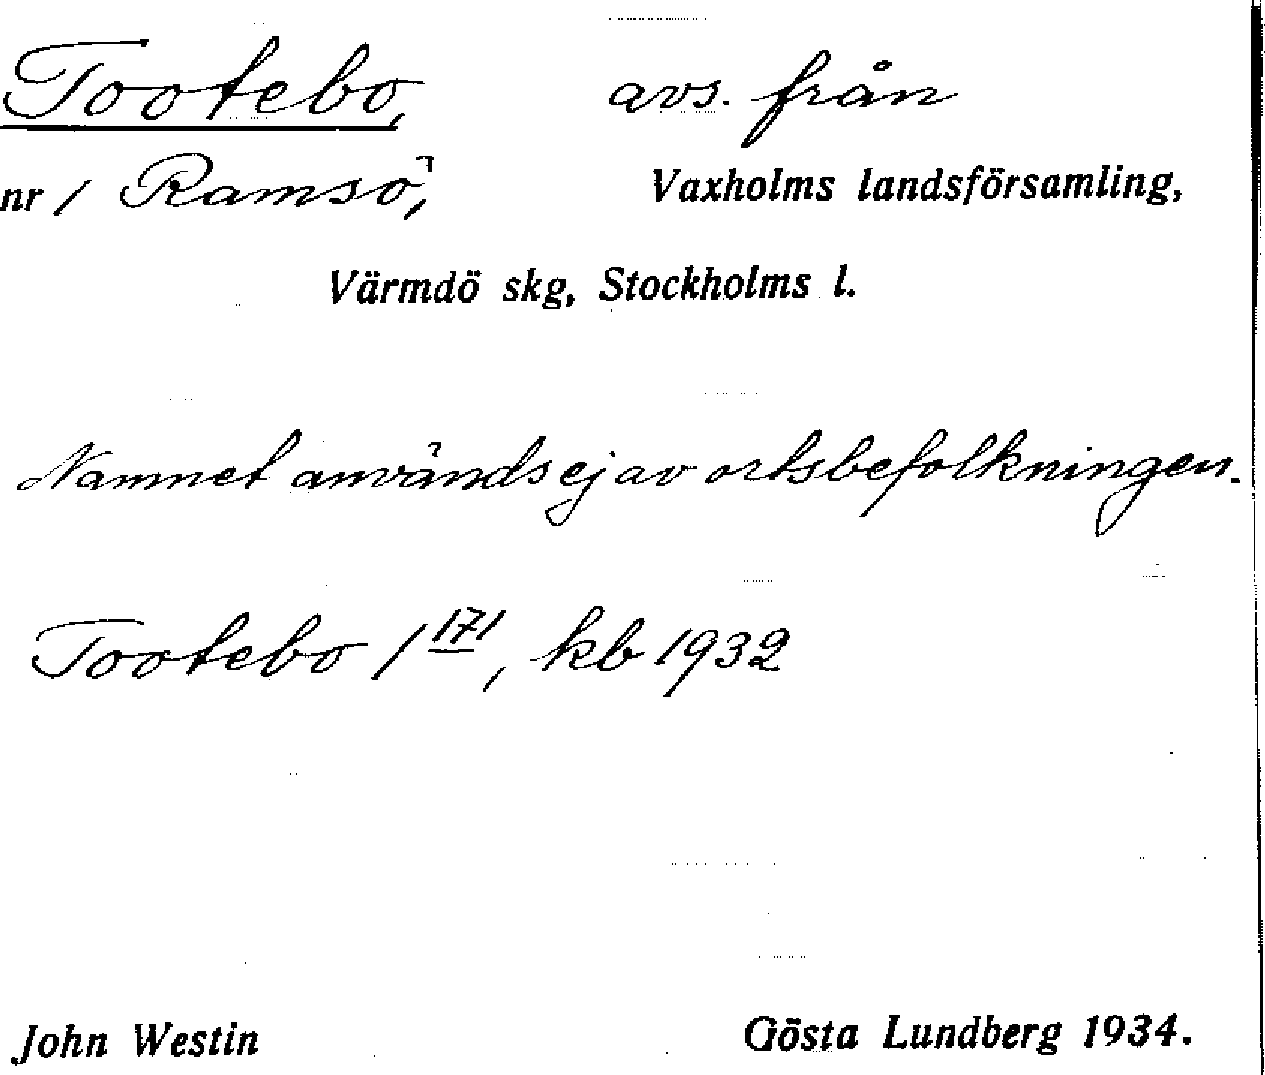 Tootebo, avs. från
nr 1 Ramsö, Vaxholms landsförsamling,
Värmdö skg, Stockholms l.
Namnet används ej av ortsbefolkningen.
Tootebo 1 171, kb 1932
John Westin Gösta Lundberg 1934.